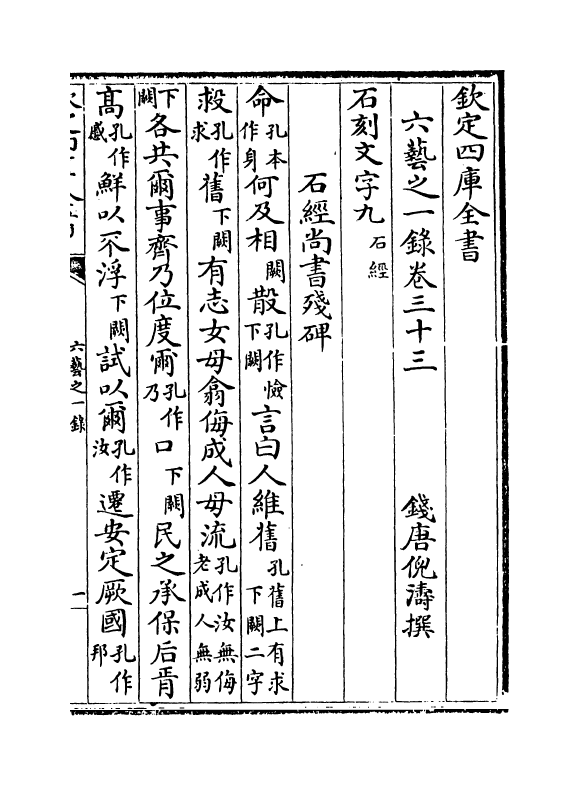 欽定四庫全書
六藝之一錄卷三十三　錢唐倪濤撰
石刻文字九石經
石經尚書殘碑
命孔本作身何及相闕散孔作憸下闕言曰人維舊孔舊上有求下闕二字
救孔作求舊下闕有志女毋翕侮成人毋流孔作汝無侮老成人無弱
下闕各共爾事齊乃位度爾孔作乃口下闕民之承保后胥
高孔作慼鮮以不浮下闕試以爾孔作汝遷安定厥國孔作邦
六藝之一錄
一